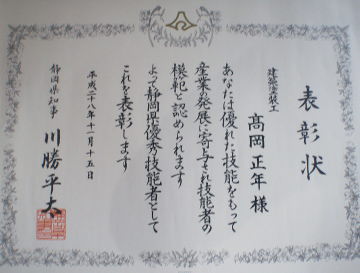 表彰状
建築塗装工
髙岡正年様
あなたは優れた技能をもって
産業の発展に寄与され技能者の
模範と認められます
よって静岡県優秀技能者として
これを表彰します
平成二十八年十一月十五日
静岡県知事
川勝平太